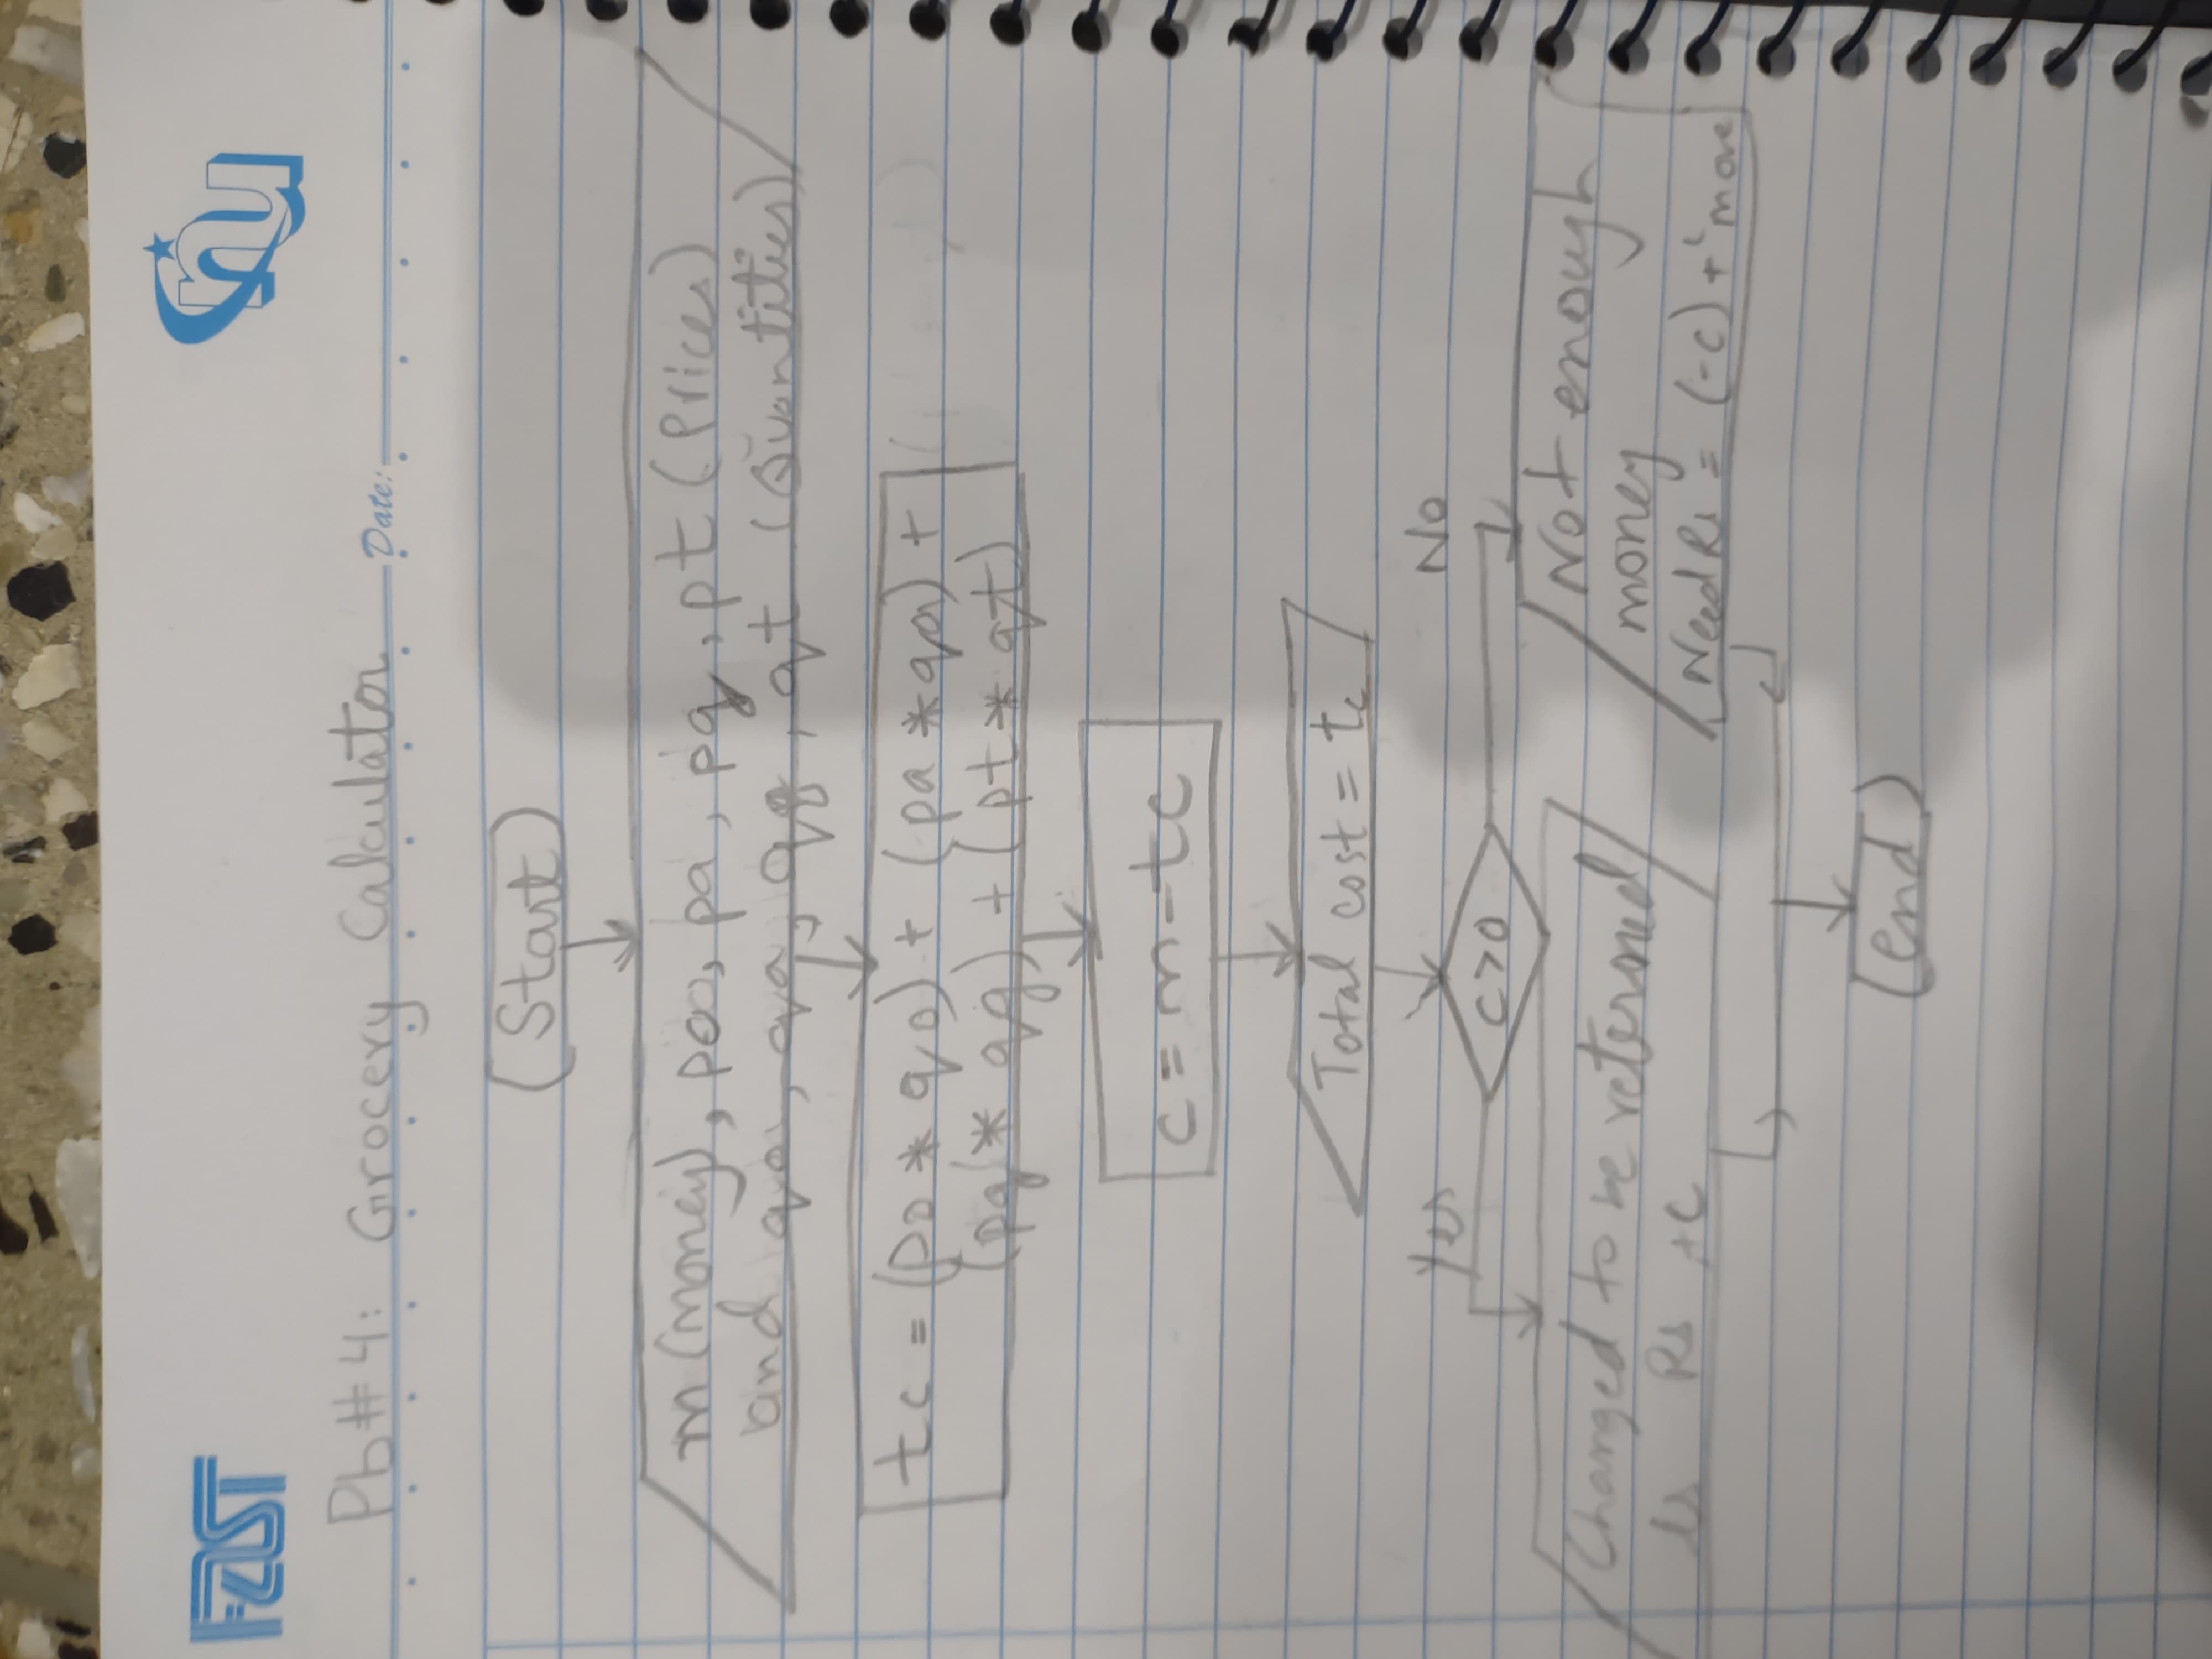 FAST
nu
Pb#4: Grocery Calculator
Date:
(Start)
m (money), po, pa, pg, pt (Prices)
and qo, qa, qg, qt (Quantities)
tc = (po * qo) + (pa * qa) +
(pg * qg) + (pt * qt)
c = m - tc
Total cost = tc
Yes
No
c>0
Changed to be returned
is Rs +c
Not enough
money
Need Rs = (-c) + 'more
(end)